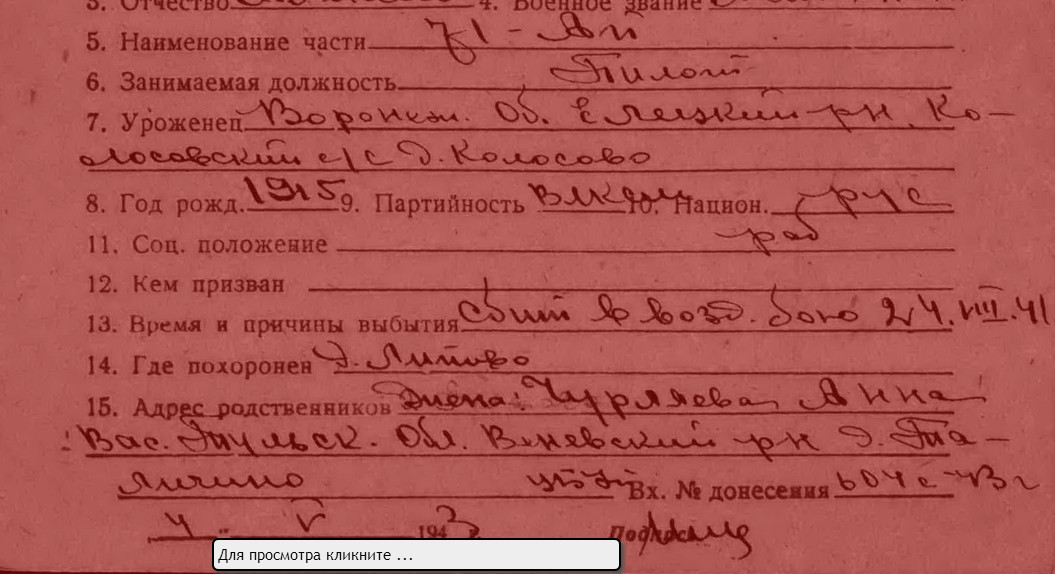 3. Отчество 4. Военное звание
5. Наименование части 71-АП
6. Занимаемая должность Пилот
7. Уроженец Воронеж. Об. Елецкий р-н. Ко-
лосовский с/с д. Колосово
8. Год рожд. 1915 9. Партийность ВЛКСМ 10. Национ. рус
11. Соц. положение раб
12. Кем призван
13. Время и причины выбытия сбит в возд. бою 24.VIII.41
14. Где похоронен д. Липово
15. Адрес родственников Жена: Чурляева Анна
Вас. Тульск. Обл. Веневский р-н д.
Вх. № донесения 604с-43г
4 " V 1943
Для просмотра кликните ...